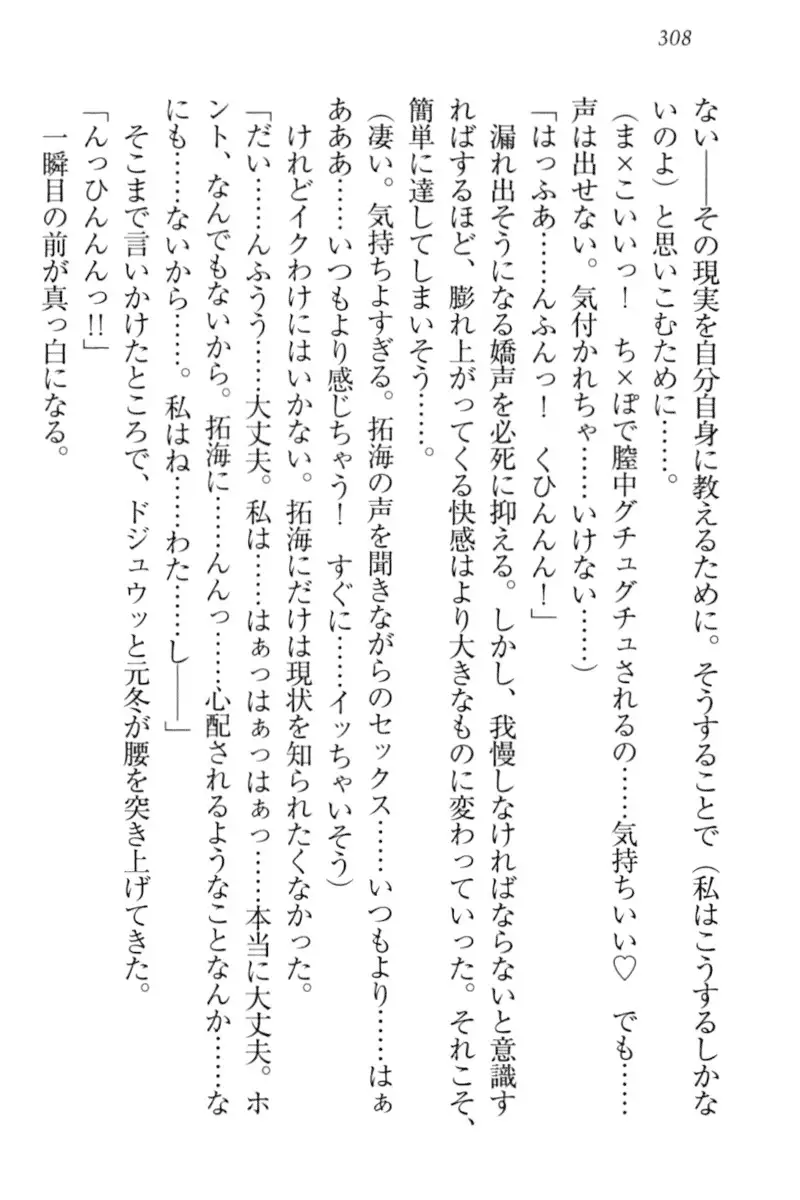 308
ない――その現実を自分自身に教えるために。そうすることで(私はこうするしかな
いのよ)と思いこむために……。
(ま×こいいっ! ち×ぽで膣中グチュグチュされるの……気持ちいい♡ でも……
声は出せない。気付かれちゃ……いけない……)
「はっふあ……んふんっ! くひんんん!」
漏れ出そうになる嬌声を必死に抑える。しかし、我慢しなければならないと意識す
ればするほど、膨れ上がってくる快感はより大きなものに変わっていった。それこそ、
簡単に達してしまいそう……。
(凄い。気持ちよすぎる。拓海の声を聞きながらのセックス……いつもより……はぁ
あああ……いつもより感じちゃう! すぐに……イッちゃいそう)
けれどイクわけにはいかない。拓海にだけは現状を知られたくなかった。
「だい……んふうう……大丈夫。私は……はぁっはぁっはぁっ……本当に大丈夫。ホ
ント、なんでもないから。拓海に……んんっ……心配されるようなことなんか……な
にも……ないから……。私はね……わた……し――」
そこまで言いかけたところで、ドジュウッと元冬が腰を突き上げてきた。
「んっひんんんっ!!」
一瞬目の前が真っ白になる。